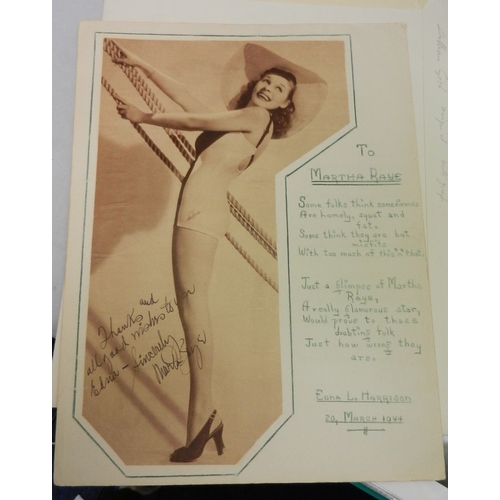 To
Martha Raye
Some folks think comediennes
Are homely, squat and
fat.
Some think they are but
misfits
With too much of this 'n' that.
Just a glimpse of Martha
Raye,
A really glamorous star,
Would prove to these
doubting folk
Just how wrong they
are.
Edna L. Harrison
20, March 1944
Thanks and
all good wishes to you
Edna - Sincerely
Martha Raye